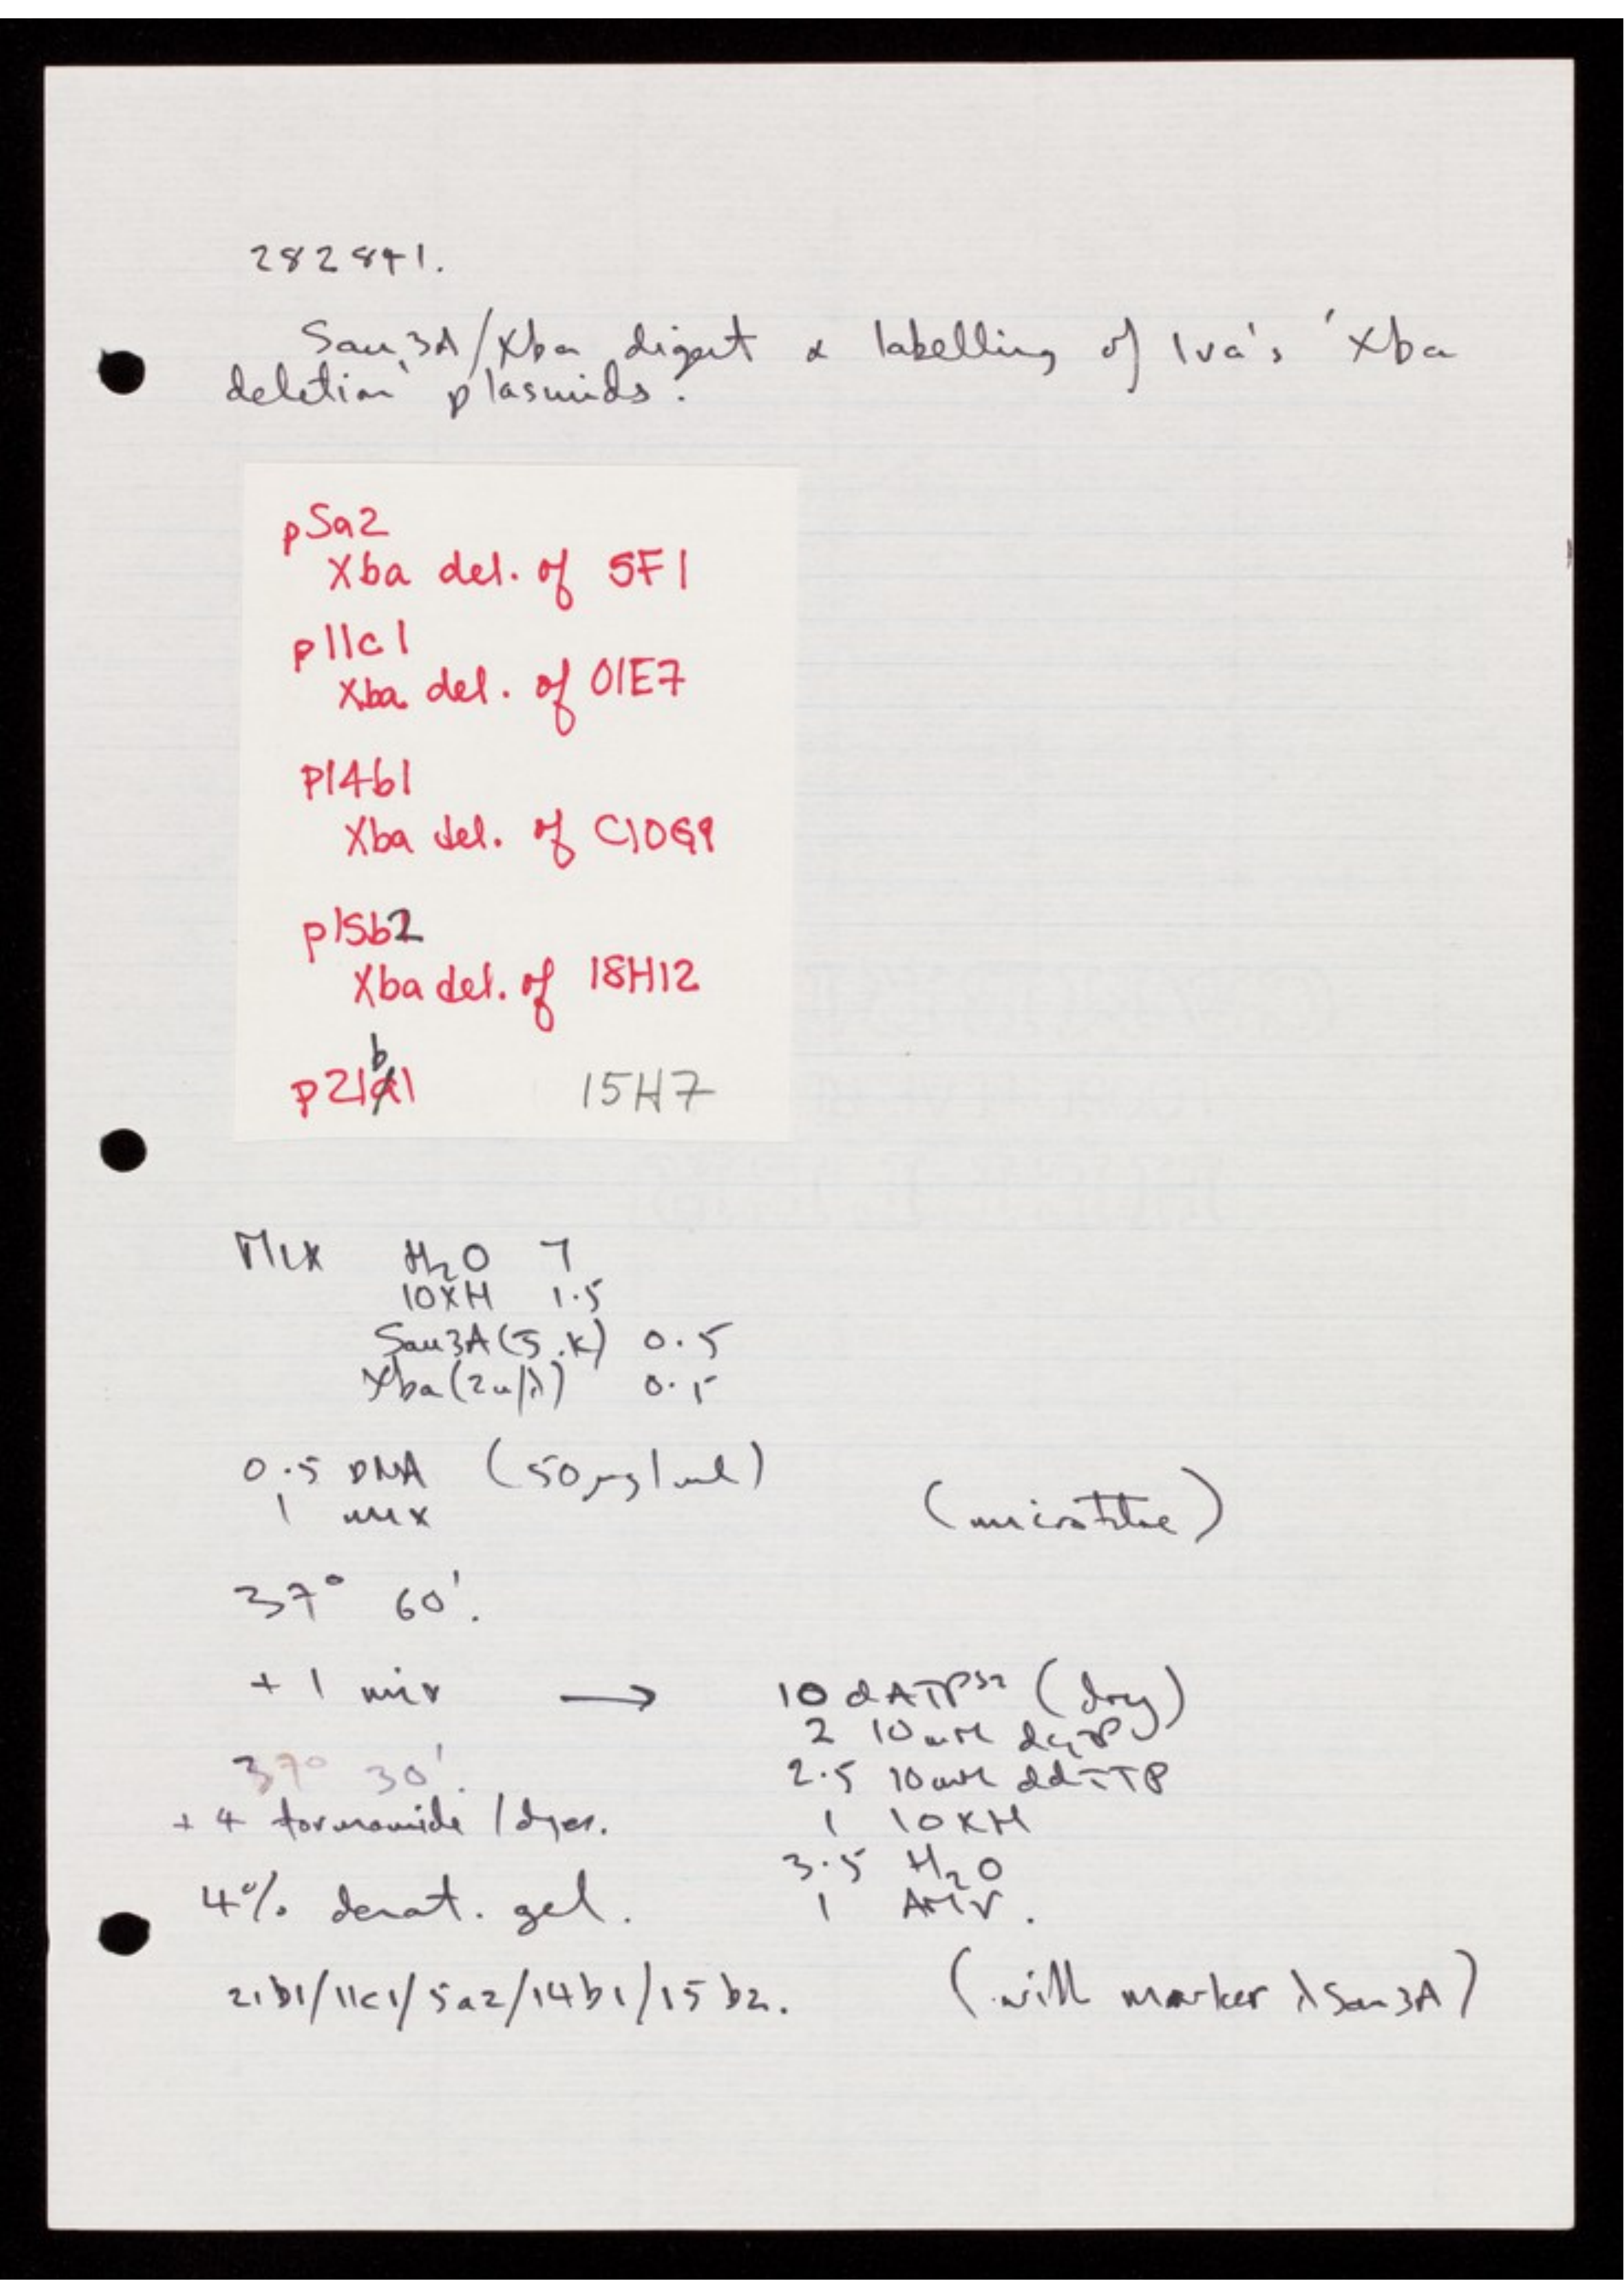 282841.
Sau3A/Xba digest & labelling of Iva's 'Xba
deletion' plasmids.
p5a2
Xba del. of 5F1
p11c1
Xba del. of 01E7
p14b1
Xba del. of C10G9
p15b2
Xba del. of 18H12
b
p21a1 15H7
Mix H2O 7
10XH 1.5
Sau3A (J.K) 0.5
Xba (2u/λ) 0.5
0.5 DNA (50μg/ml)
1 mix
(microtitre)
37° 60'.
+ 1 mix → 10 dATP32 (dry)
2 10mM dGTP
37° 30'. 2.5 10mM ddTTP
+ 4 formamide / dyes. 1 10XH
3.5 H2O
4% denat. gel. 1 AMV.
21b1/11c1/5a2/14b1/15b2. (with marker λ Sau3A)